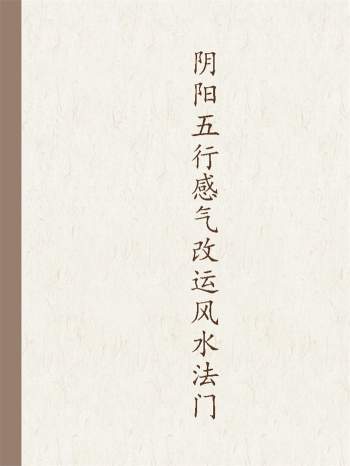 阴阳五行感气改运风水法门